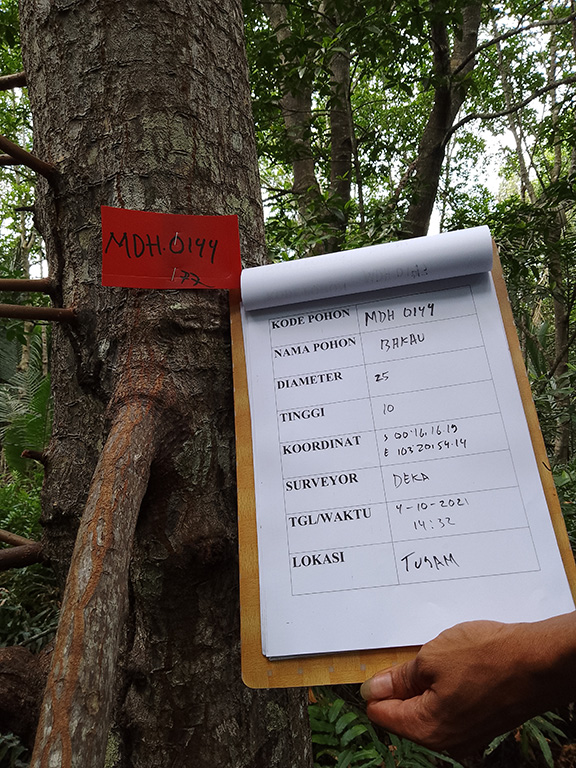 MDH.0144
177
KODE POHON MDH 0144
NAMA POHON BAKAU
DIAMETER 25
TINGGI 10
KOORDINAT S 00.16.16.19
E 103.20.54.14
SURVEYOR DEKA
TGL/WAKTU 4-10-2021
14:32
LOKASI